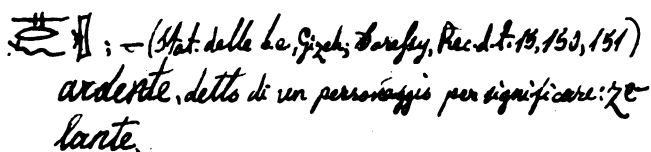 ; — (Stat. delle b.e, Gizeh; Daressy, Rec. d. t. 15, 150, 151)
ardente, detto di un personaggio per significare: ze
lante.